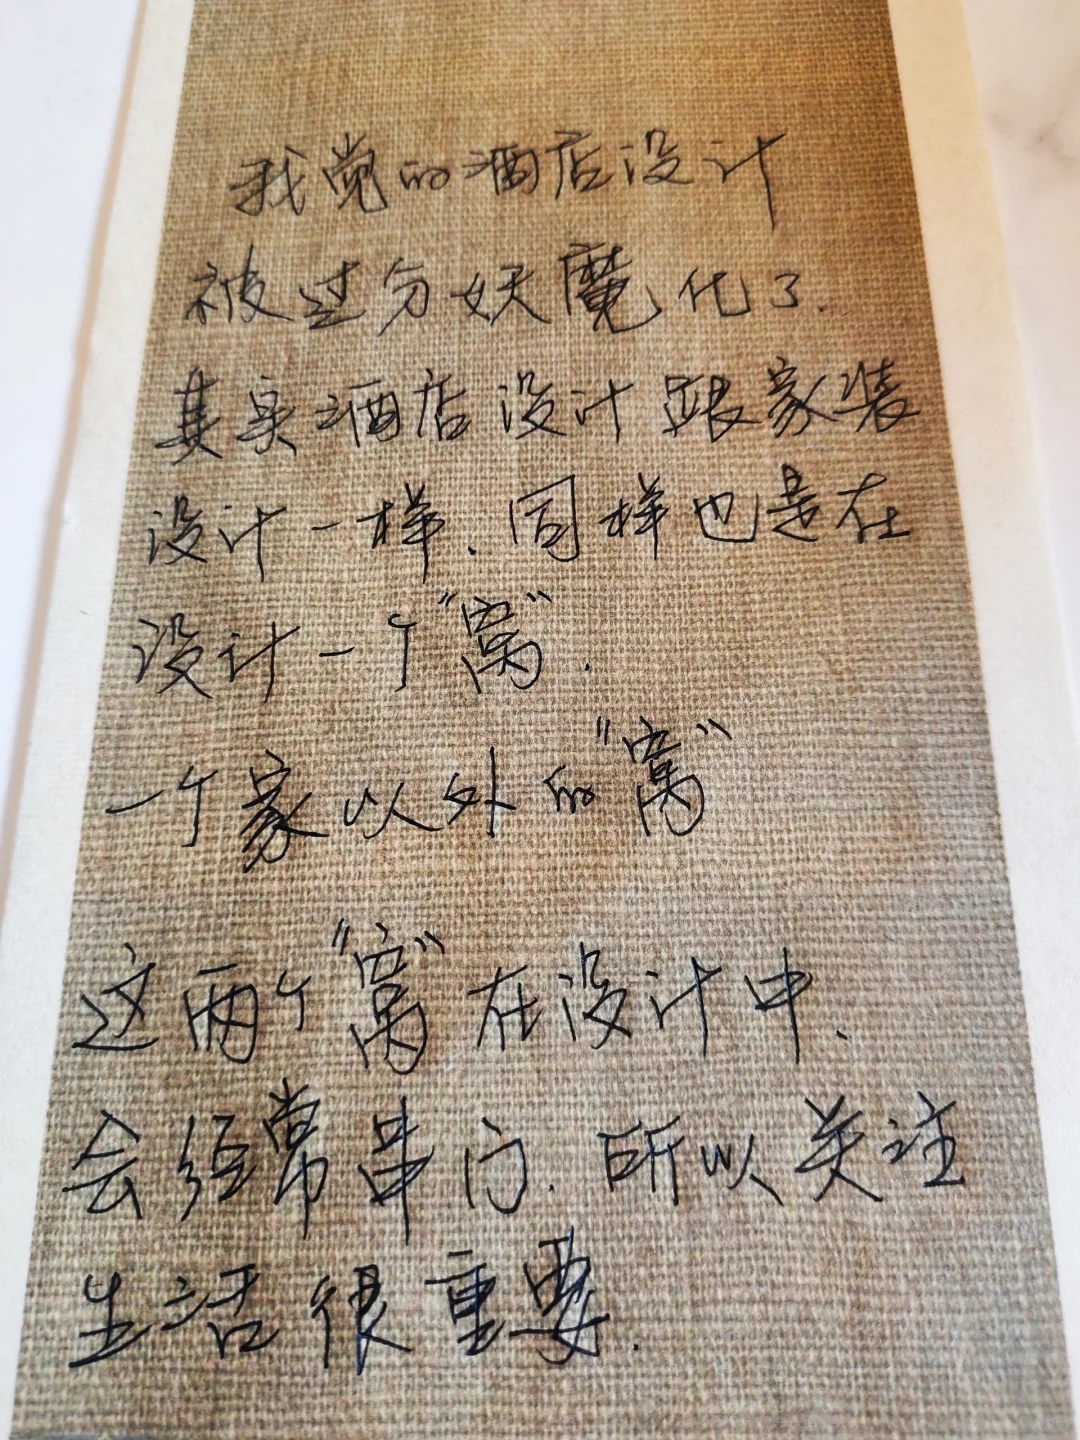 我觉的酒店设计
被过分妖魔化了.
其实酒店设计跟家装
设计一样.同样也是在
设计一个"窝".
一个家以外的"窝"
这两个"窝"在设计中、
会经常串门.所以关注
生活很重要.